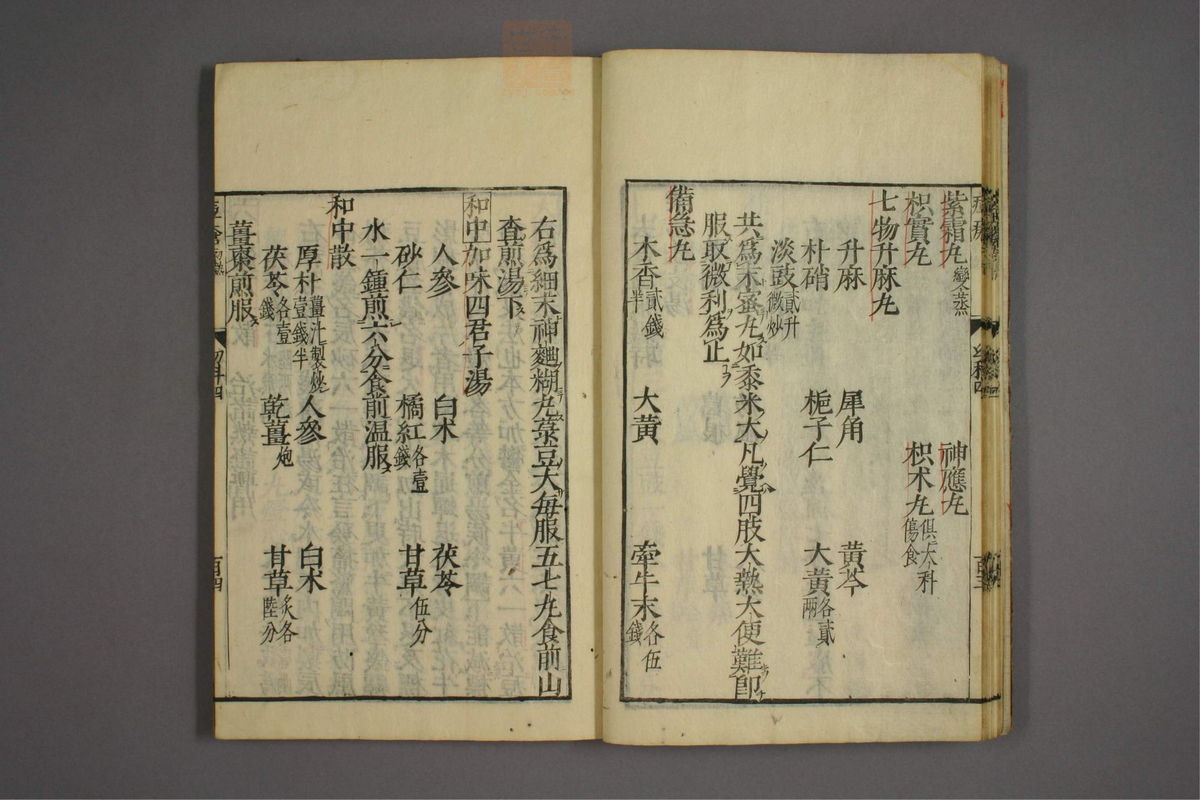 紫霜丸 變蒸 神應丸
枳實丸 枳朮丸 俱大科傷食
七物升麻丸
升麻 犀角 黃芩
朴硝 梔子仁 大黃 各貳兩
淡豉 貳升微炒
共爲末蜜丸如黍米大凡覺四肢大熱大便難卽
服取微利爲止
備急丸
木香 貳錢半 大黃 牽牛末 各伍錢
右爲細末神麯糊丸菉豆大每服五七丸食前山
查煎湯下
和中加味四君子湯
人參 白朮 茯苓
砂仁 橘紅 各壹錢 甘草 伍分
水一鍾煎六分食前温服
和中散
厚朴 薑汁製炒壹錢半 人參 白朮
茯苓 各壹錢 乾薑 炮 甘草 炙各陸分
薑棗煎服